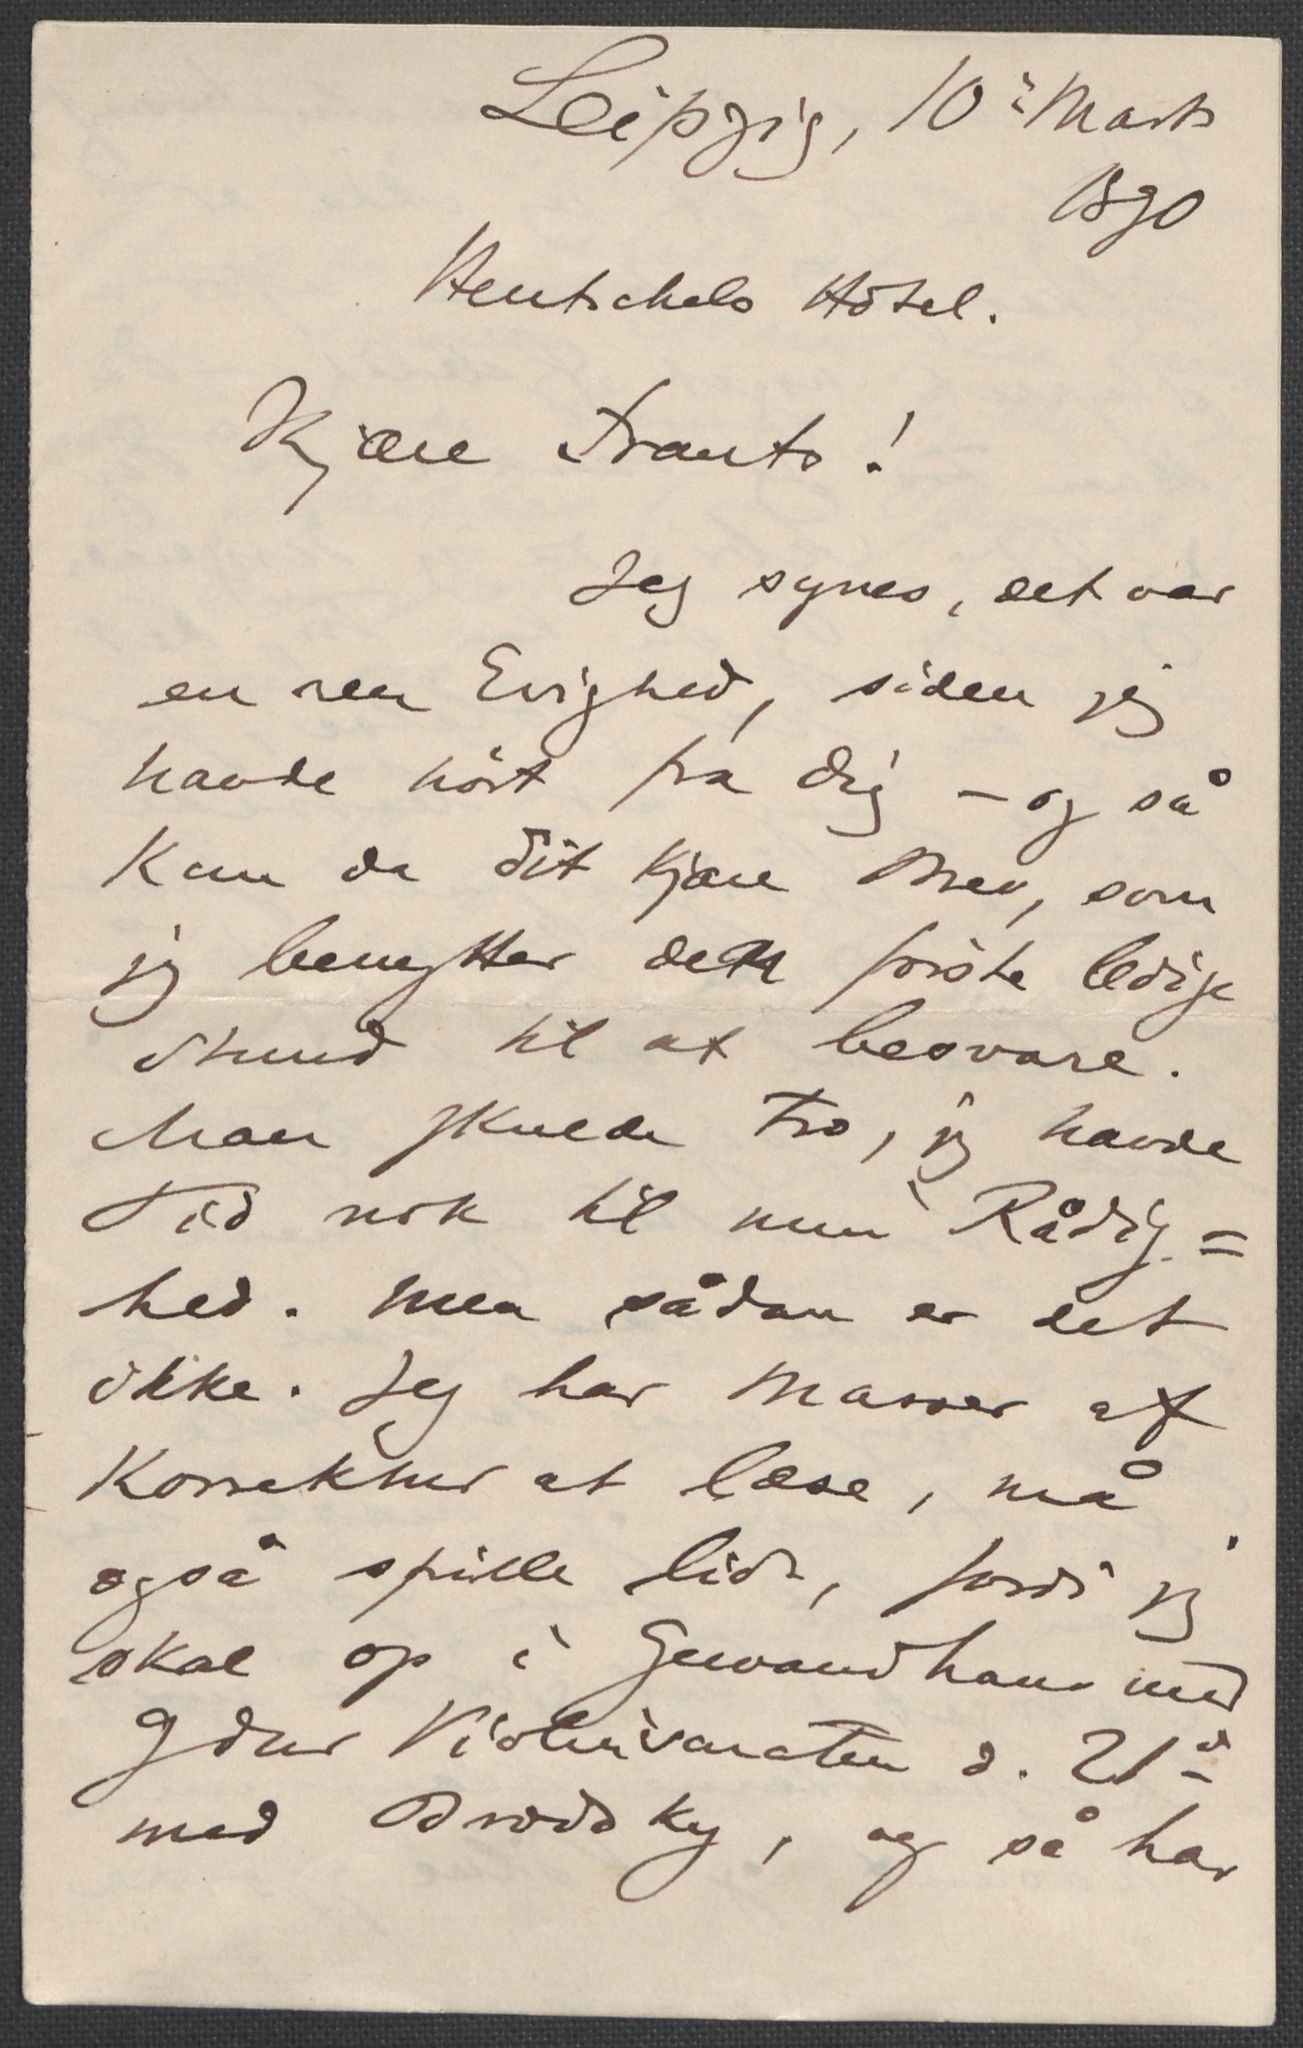 Leipzig, 10: Marts
1890
Hentschels Hôtel.
Kjære Frants!
Jeg synes, det var
en ren Evighed, siden jeg
havde hört fra Dig – og så
kom da Dit kjære Brev, som
jeg benytter den förste ledige
Stund til at besvare.
Man skulde tro, jeg havde
Tid nok til min Rådig=
hed. Men sådan er det
ikke. Jeg har Masser af
Korrektur at læse, må
også spille lidt, fordi jeg
skal op i Gewandhaus med
Gdur Violinsonaten d. 21de
med Brodsky, og så har